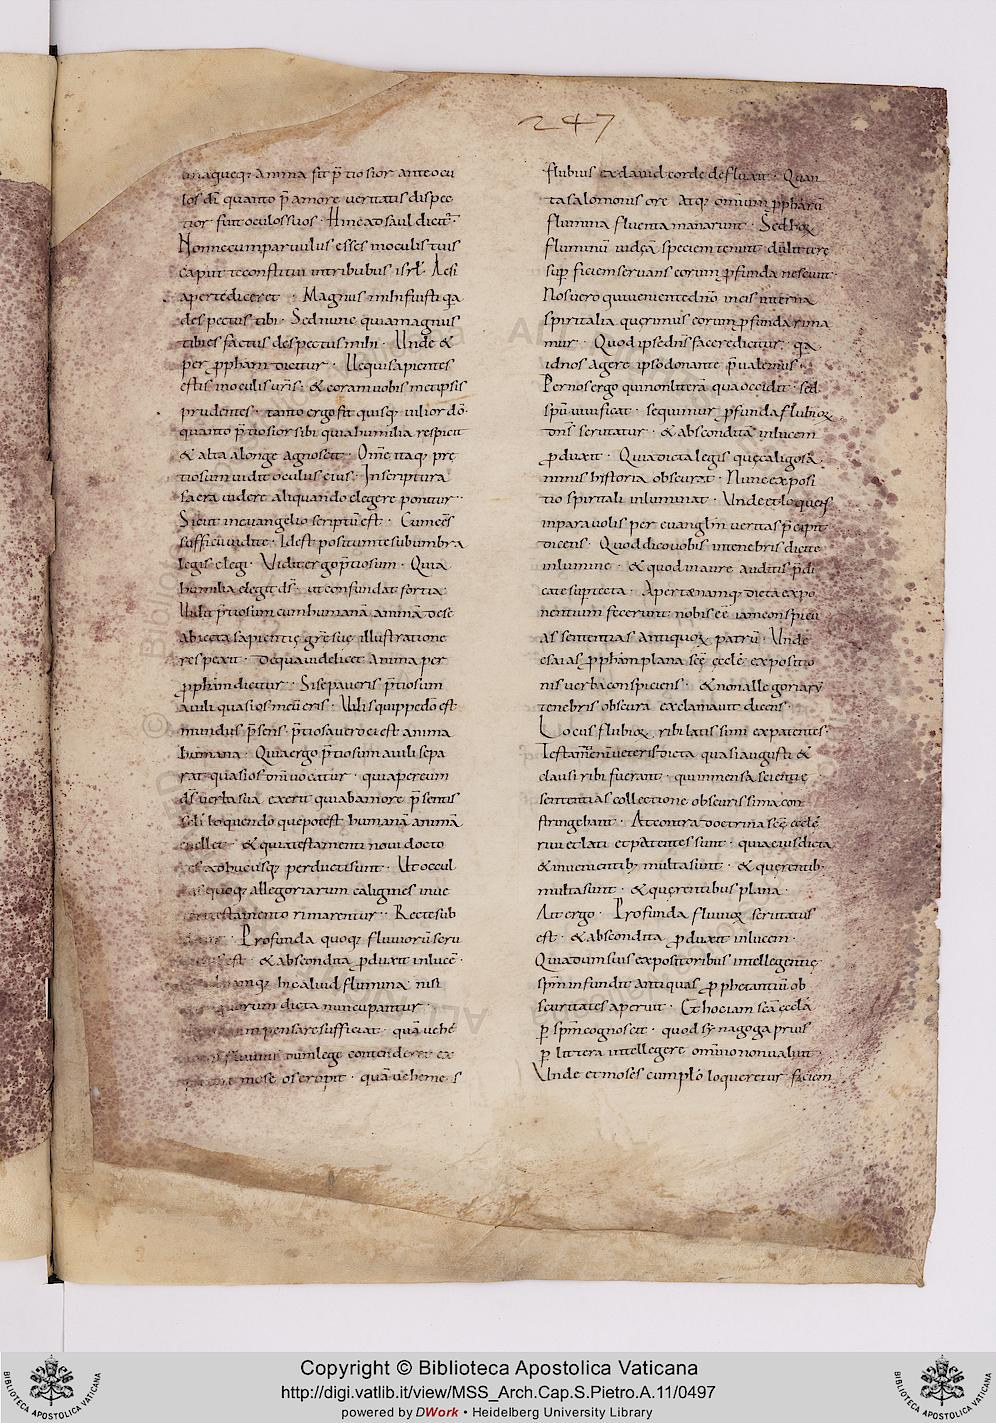 247
unaqueq; anima fit p̄tiosior ante ocu
los dī quanto p̄ amore veritatis dispec
tior fuit oculos suos · Hinc ad saul dicit̄ ·
Nonne cum parvulus esses in oculis tuis
caput te constitui in tribubus isrl̄ · Ac si
aperte diceret · Magnus mihi fuisti q̄a
despectus tibi · Sed nunc quia magnus
tibi es factus despectus mihi · Unde &
per p̄pham dicitur · Ue qui sapientes
estis in oculis uris · & coram uobis metipsis
prudentes · tanto ergo fit quisq; uilior dō ·
quanto p̄tiosior sibi quia humilia respicit
& alta a longe agnoscit · Om̄e itaq; prę
tiosum uidit oculus eius · In scriptura
sacra uidere aliquando elegere ponitur ·
Sicut in euangelio scriptū est · Cum ess̄
sub ficu uidi te · Id est positum te sub umbra
legis elegi · Vidit ergo p̄tiosum · Quia
humilia elegit dś · ut confundat fortia
respexit · De qua uidelicet anima per
p̄pham dicitur · Si separaueris p̄tiosum
a uili quasi os meū eris · Uilis quippe dō est
mundus p̄sens · p̄tiosa uero ei est anima
humana · Qui a ergo p̄tiosum a uili sepa
rat quasi os dn̄i uocatur · qui a per eum
dś uerba sua exerit qui ab amore p̄sentis
loquendo que potest humanā animā
& quia testamenti noui docto
ad hucusq; perducti sunt · Ut occul
quoq; allegoriarum caligines in ue
testamento rimarentur · Recte sub
· Profunda quoq; fluuiorū scru
est · & abscondita p̄duxit in lucē ·
hic aliud flumina nisi
quorum dicta nuncupantur ·
pensare sufficiat · quā uehe
fluuius dum lege contenderet ex
mose os erupit · quā ueheme s
flubius ex dauid corde defluxit · Quan
ta salomonis ore atq; omium p̄phārū
flumina fluenta manarunt · Sed hoꝝ
fluminū iudea speciem tenuit dū litterę
sup̄ficiem seruans eorum p̄funda nesciuit ·
Nos uero qui ueniente dnō in eis interna
spiritalia querimus eorum p̄funda rima
mur · Quod ipse dn̄s facere dicitur · q̄a
id nos agere ipso donante p̄ualemus ·
Per nos ergo qui non litterā qua occidit · sed
spm̄ uiuificat · sequimur p̄funda flubioꝝ
dn̄s scrutatur · & abscondita in lucem
p̄duxit · Quia dicta legis que caligosa
nimis historia obscurat · Nunc exposi
tio spiritali inluminat · Unde et loquens
in parauolis per euanglm̄ ueritas p̄cipit
dicens · Quod dico uobis in tenebris dicite
in lumine · & quod in aure auditis p̄di
cate sup tecta · Aperte namq; dicta expo
nentium fecerunt nobis eē iam conspicu
as sententias antiquoꝝ patrū · Unde
esaias p̄pham plana scē ecclē expositio
nis uerba conspiciens · & non allegoriarū
tenebris obscura exclamauit dicens ·
Locus flubioꝝ ribi latissimi et patentes ·
Testam̄enti ueteris dicta quasi angusti &
clausi ribi fuerunt · qui inmensa scientię
sententias collectione obscurissima con
stringebant · At contra doctrina scē ecclē
riui et lati et patentes sunt · quia eius dicta
& inuenientib; multa sunt · & querentib·
multa sunt · & querentibus plana ·
Ait ergo · Profunda fluuioꝝ scrutatus
est · & abscondita p̄duxit in lucem ·
Quia dum suis expositoribus intellegentię
spm̄ infundit antiquas prophetantiū ob
scuritates aperuit · Et hoc iam scā ecclā
p̄ spm̄ cognoscit · quod synagoga prius
p̄ littera intellegere omīno non ualuit ·
Unde et moses cum plō loqueretur faciem
Copyright © Biblioteca Apostolica Vaticana
http://digi.vatlib.it/view/MSS_Arch.Cap.S.Pietro.A.11/0497
powered by DWork • Heidelberg University Library